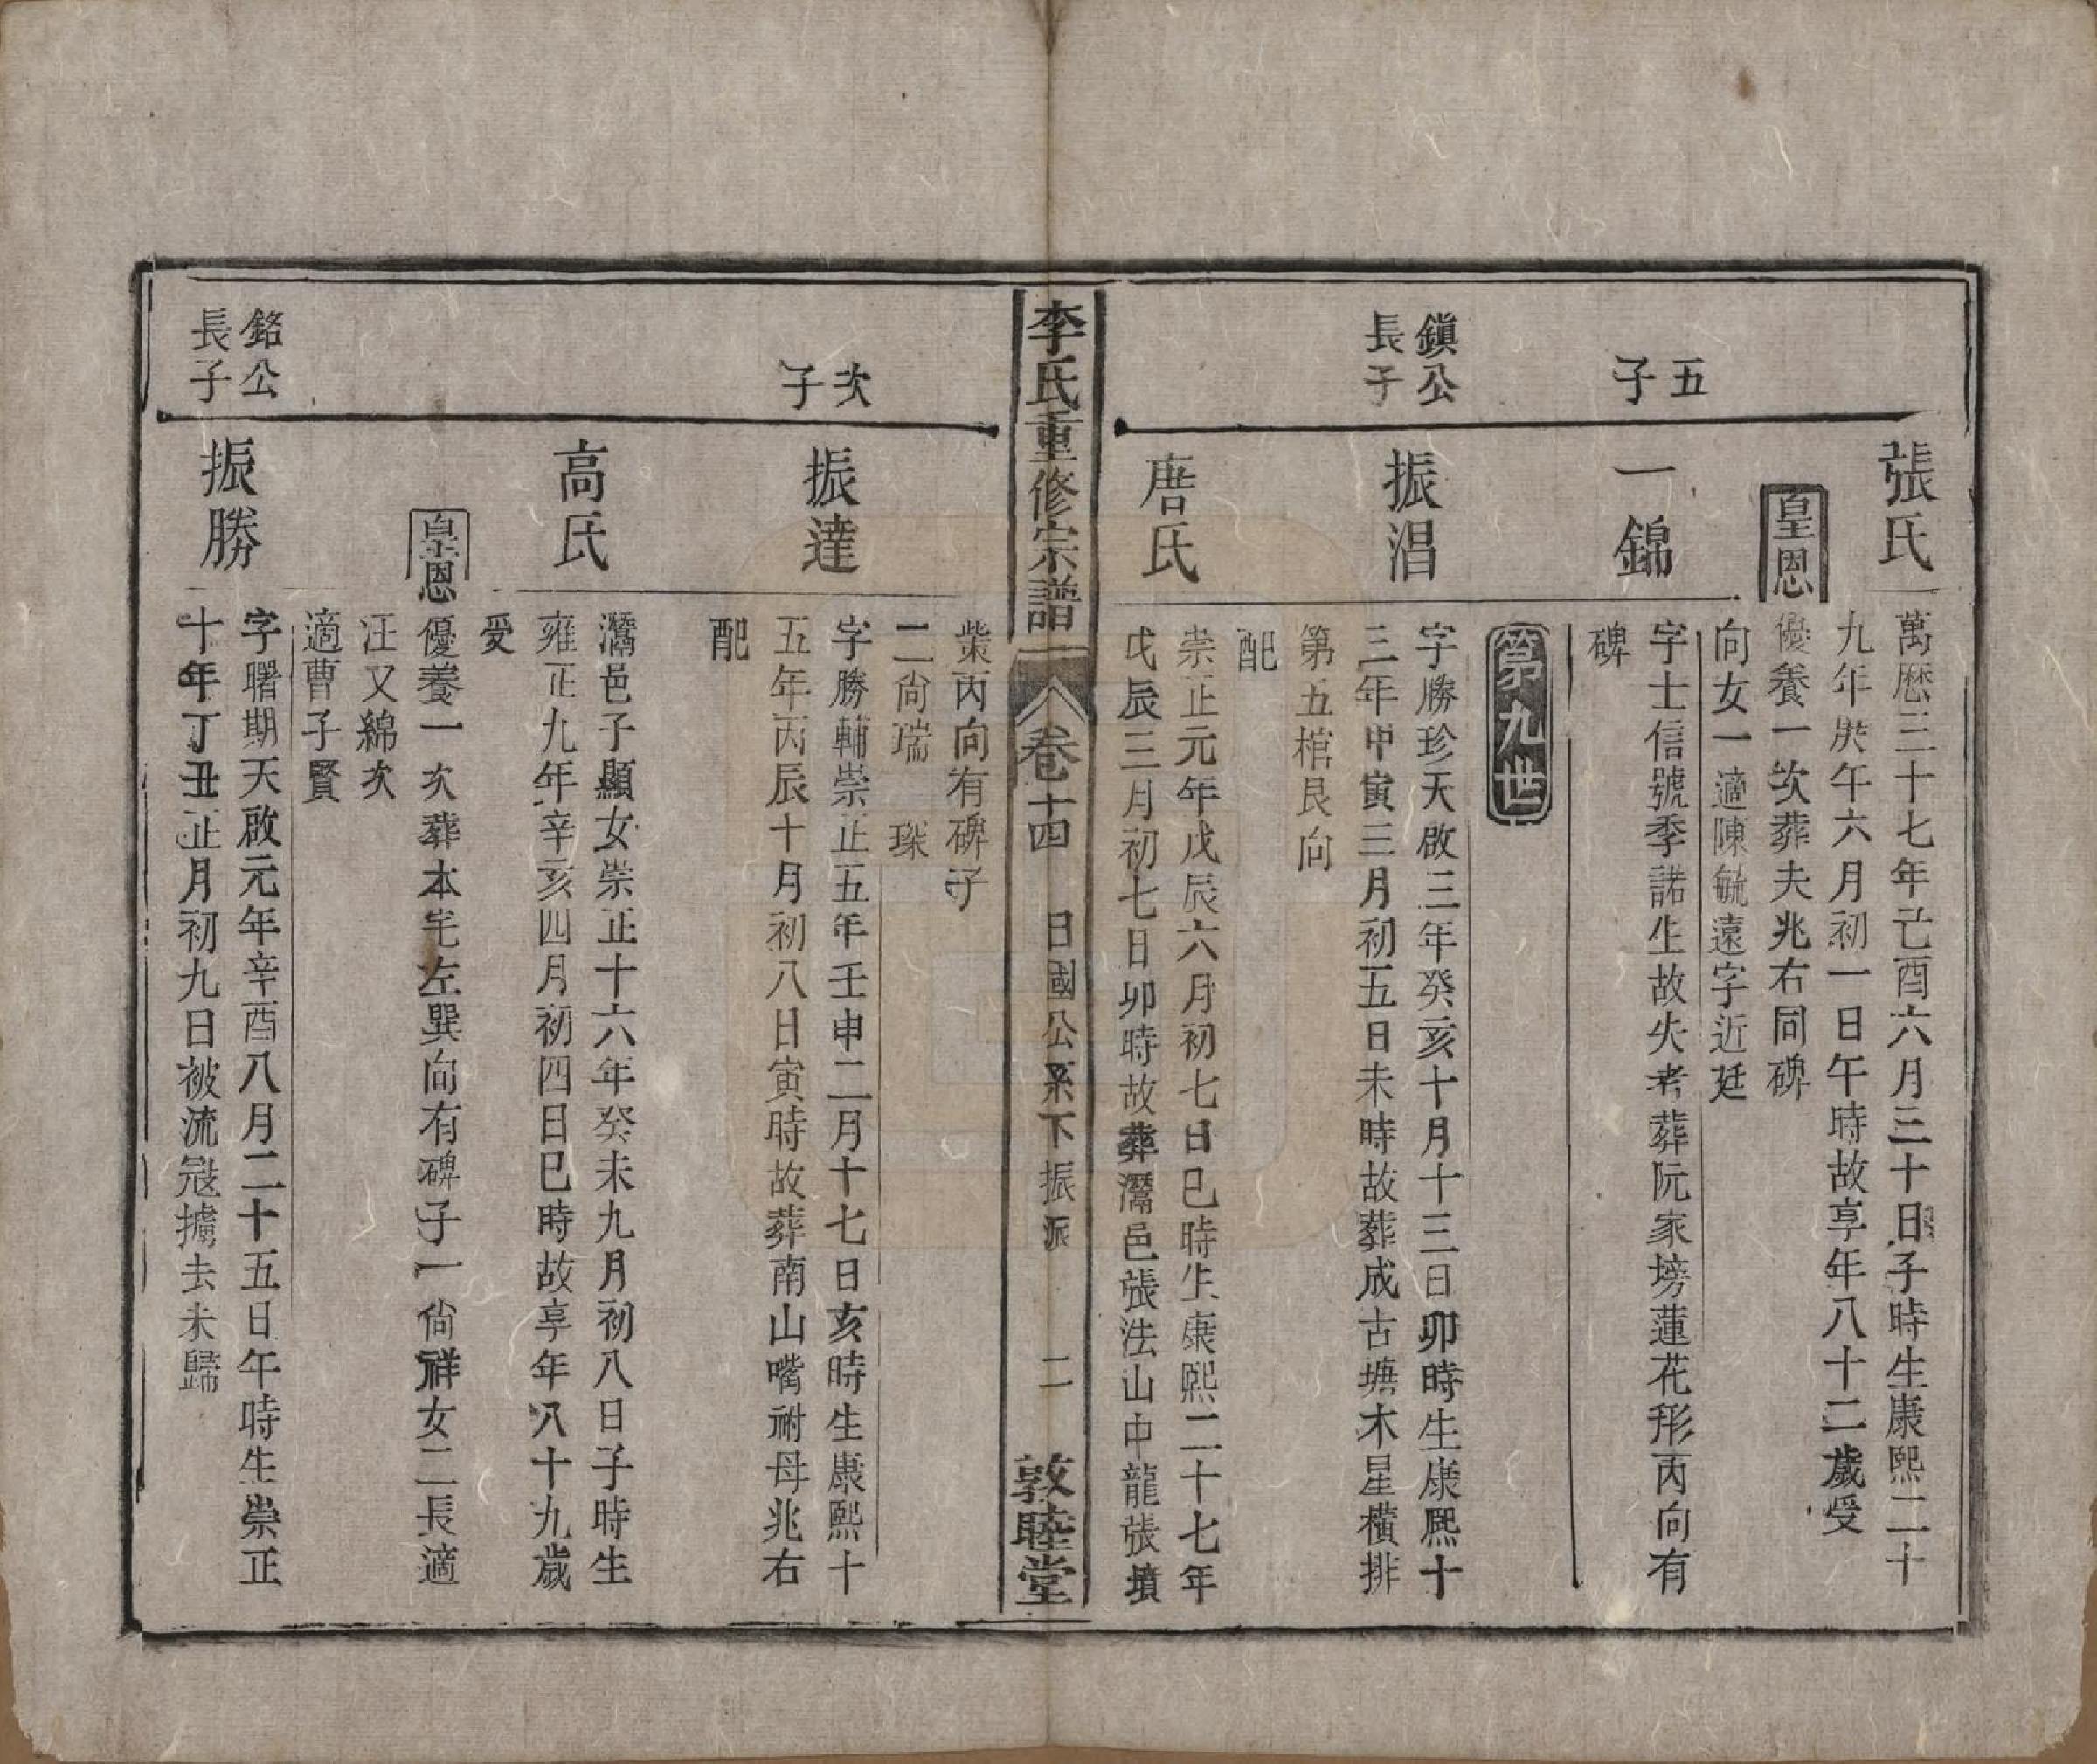 張氏
萬歷三十七年己酉六月三十日子時生康熙二十
九年庚午六月初一日午時故享年八十二歲受
皇恩
優養一次葬夫兆右同碑
向女一適陳毓遠字近廷
五
子
一錦
字士信號季諾生故失考葬阮家塝蓮花形丙向有
碑
第九世
鎮公
長子
振淐
字勝珍天啟三年癸亥十月十三日卯時生康熙十
三年甲寅三月初五日未時故葬成古塘木星橫排
第五棺艮向
配
唐氏
崇正元年戊辰六月初七日巳時生康熙二十七年
戊辰三月初七日卯時故葬灊邑張法山中龍張墳
李氏重修宗譜
卷十四
日國公系下振派
二
敦睦堂
業丙向有碑子
二尚瑞 琛
次
子
振達
字勝輔崇正五年壬申二月十七日亥時生康熙十
五年丙辰十月初八日寅時故葬南山嘴祔母兆右
配
高氏
灊邑子顯女崇正十六年癸未九月初八日子時生
雍正九年辛亥四月初四日巳時故享年八十九歲
受
皇恩
優養一次葬本宅左巽向有碑子一尚祥女二長適
汪又綿次
適曹子賢
銘公
長子
振勝
字曙期天啟元年辛酉八月二十五日午時生崇正
十年丁丑正月初九日被流冦擄去未歸